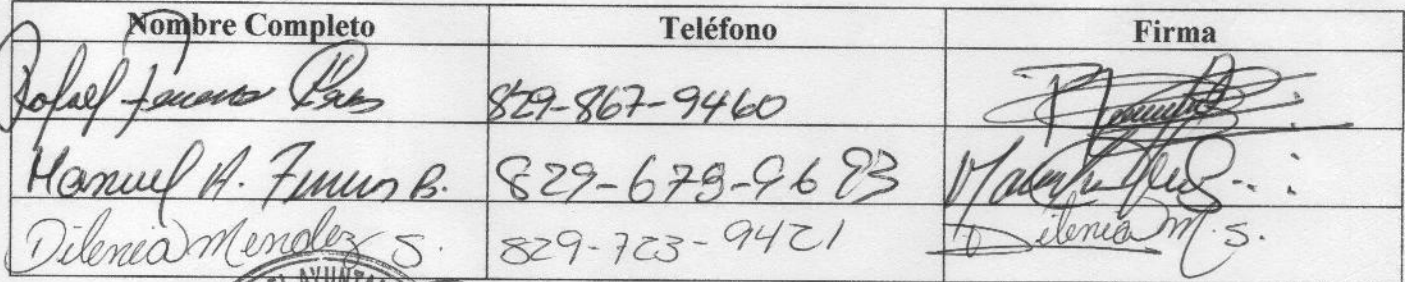 Nombre Completo Teléfono Firma
Rafael 829-867-9460
Manuel A. 829-679-9693
Dilenia Mendez S. 829-723-9421 Dilenia M. S.
AYUNTA